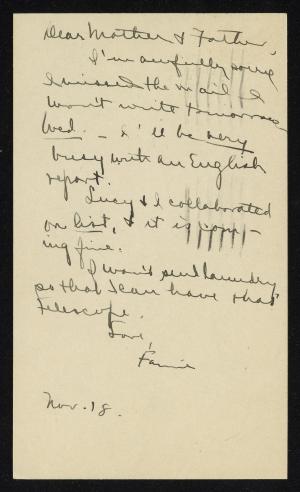 Dear Mother & Father,
I'm awfully sorry
I missed the mail. I
won't write tomorrow
Wed. - I'll be very
busy with an English
report.
Lucy & I collaborated
on list, & it is com-
ing fine.
I won't send laundry
so that I can have that
telescope.
Love,
Fannie
Nov. 18.